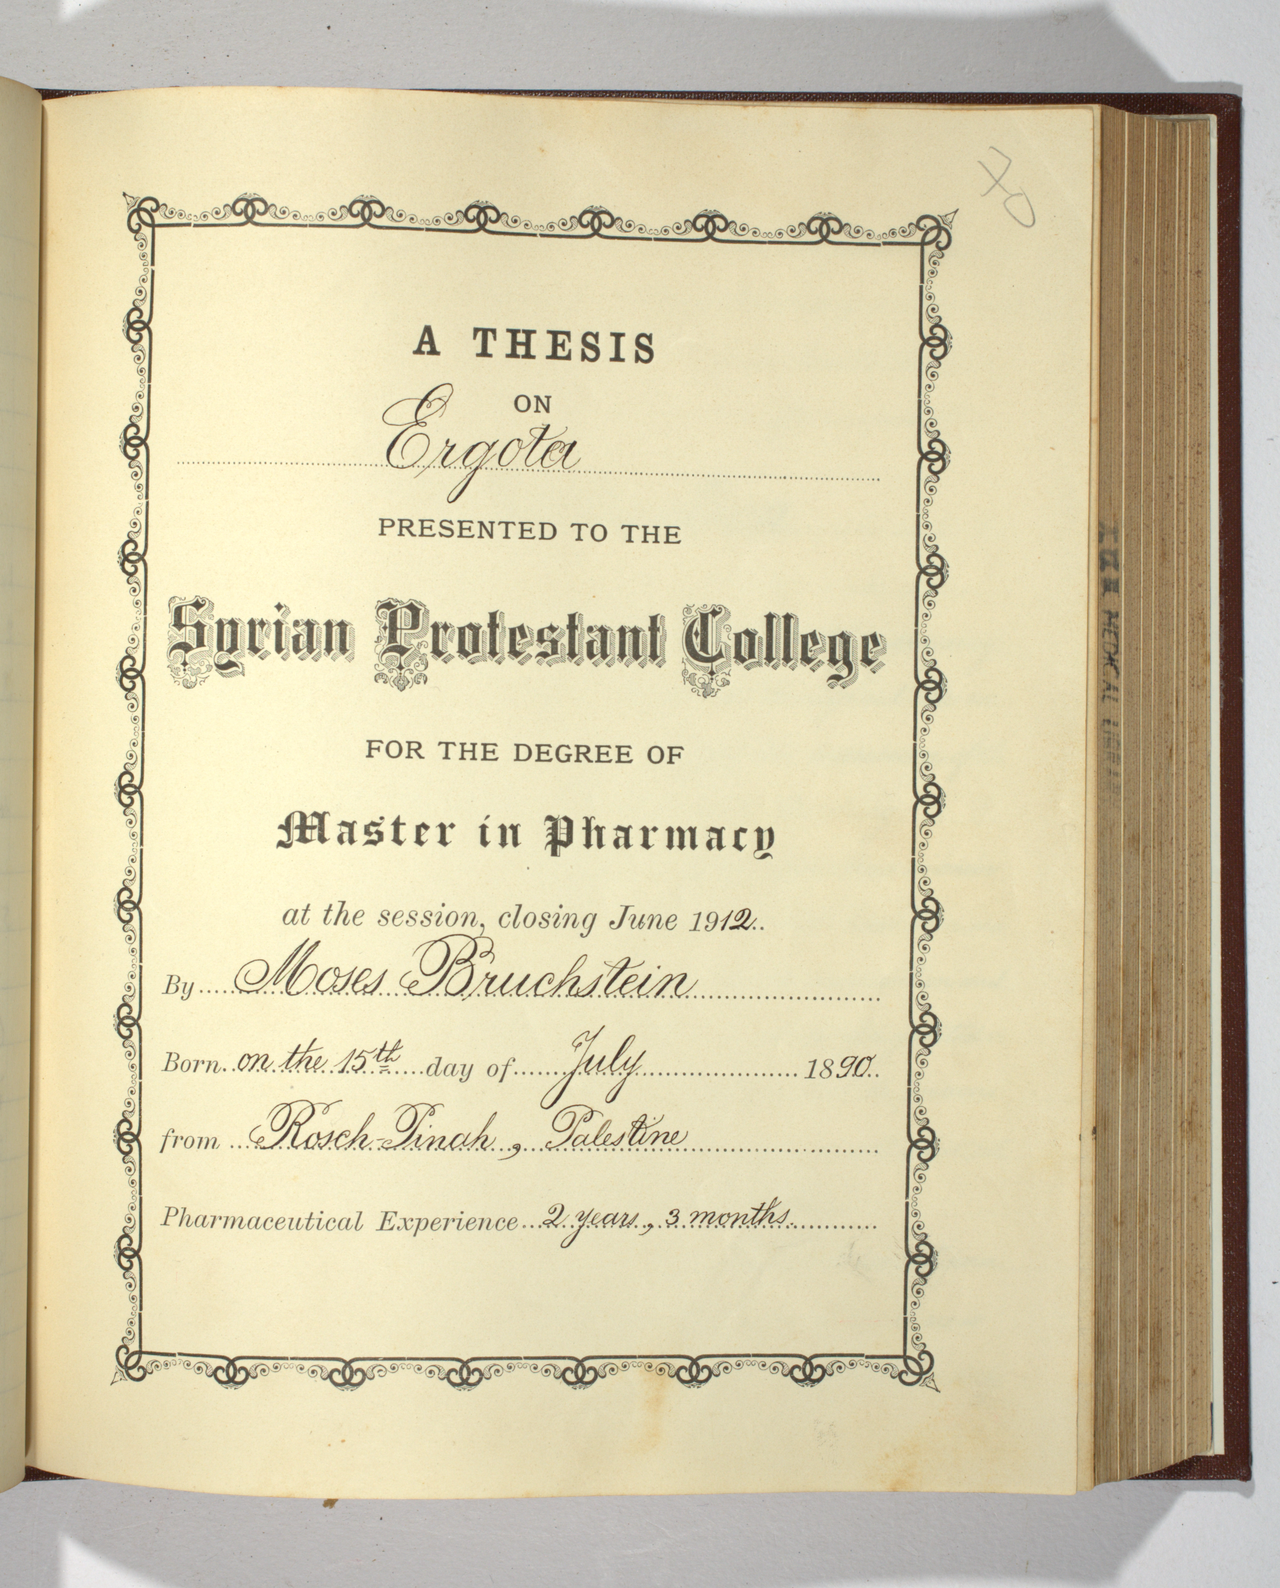 70
A THESIS
ON
Ergota
PRESENTED TO THE
Syrian Protestant College
FOR THE DEGREE OF
Master in Pharmacy
at the session, closing June 1912
By Moses Bruchstein
Born on the 15th day of July 1890
from Rosch-Pinah, Palestine
Pharmaceutical Experience 2 years, 3 months.
MEDICAL